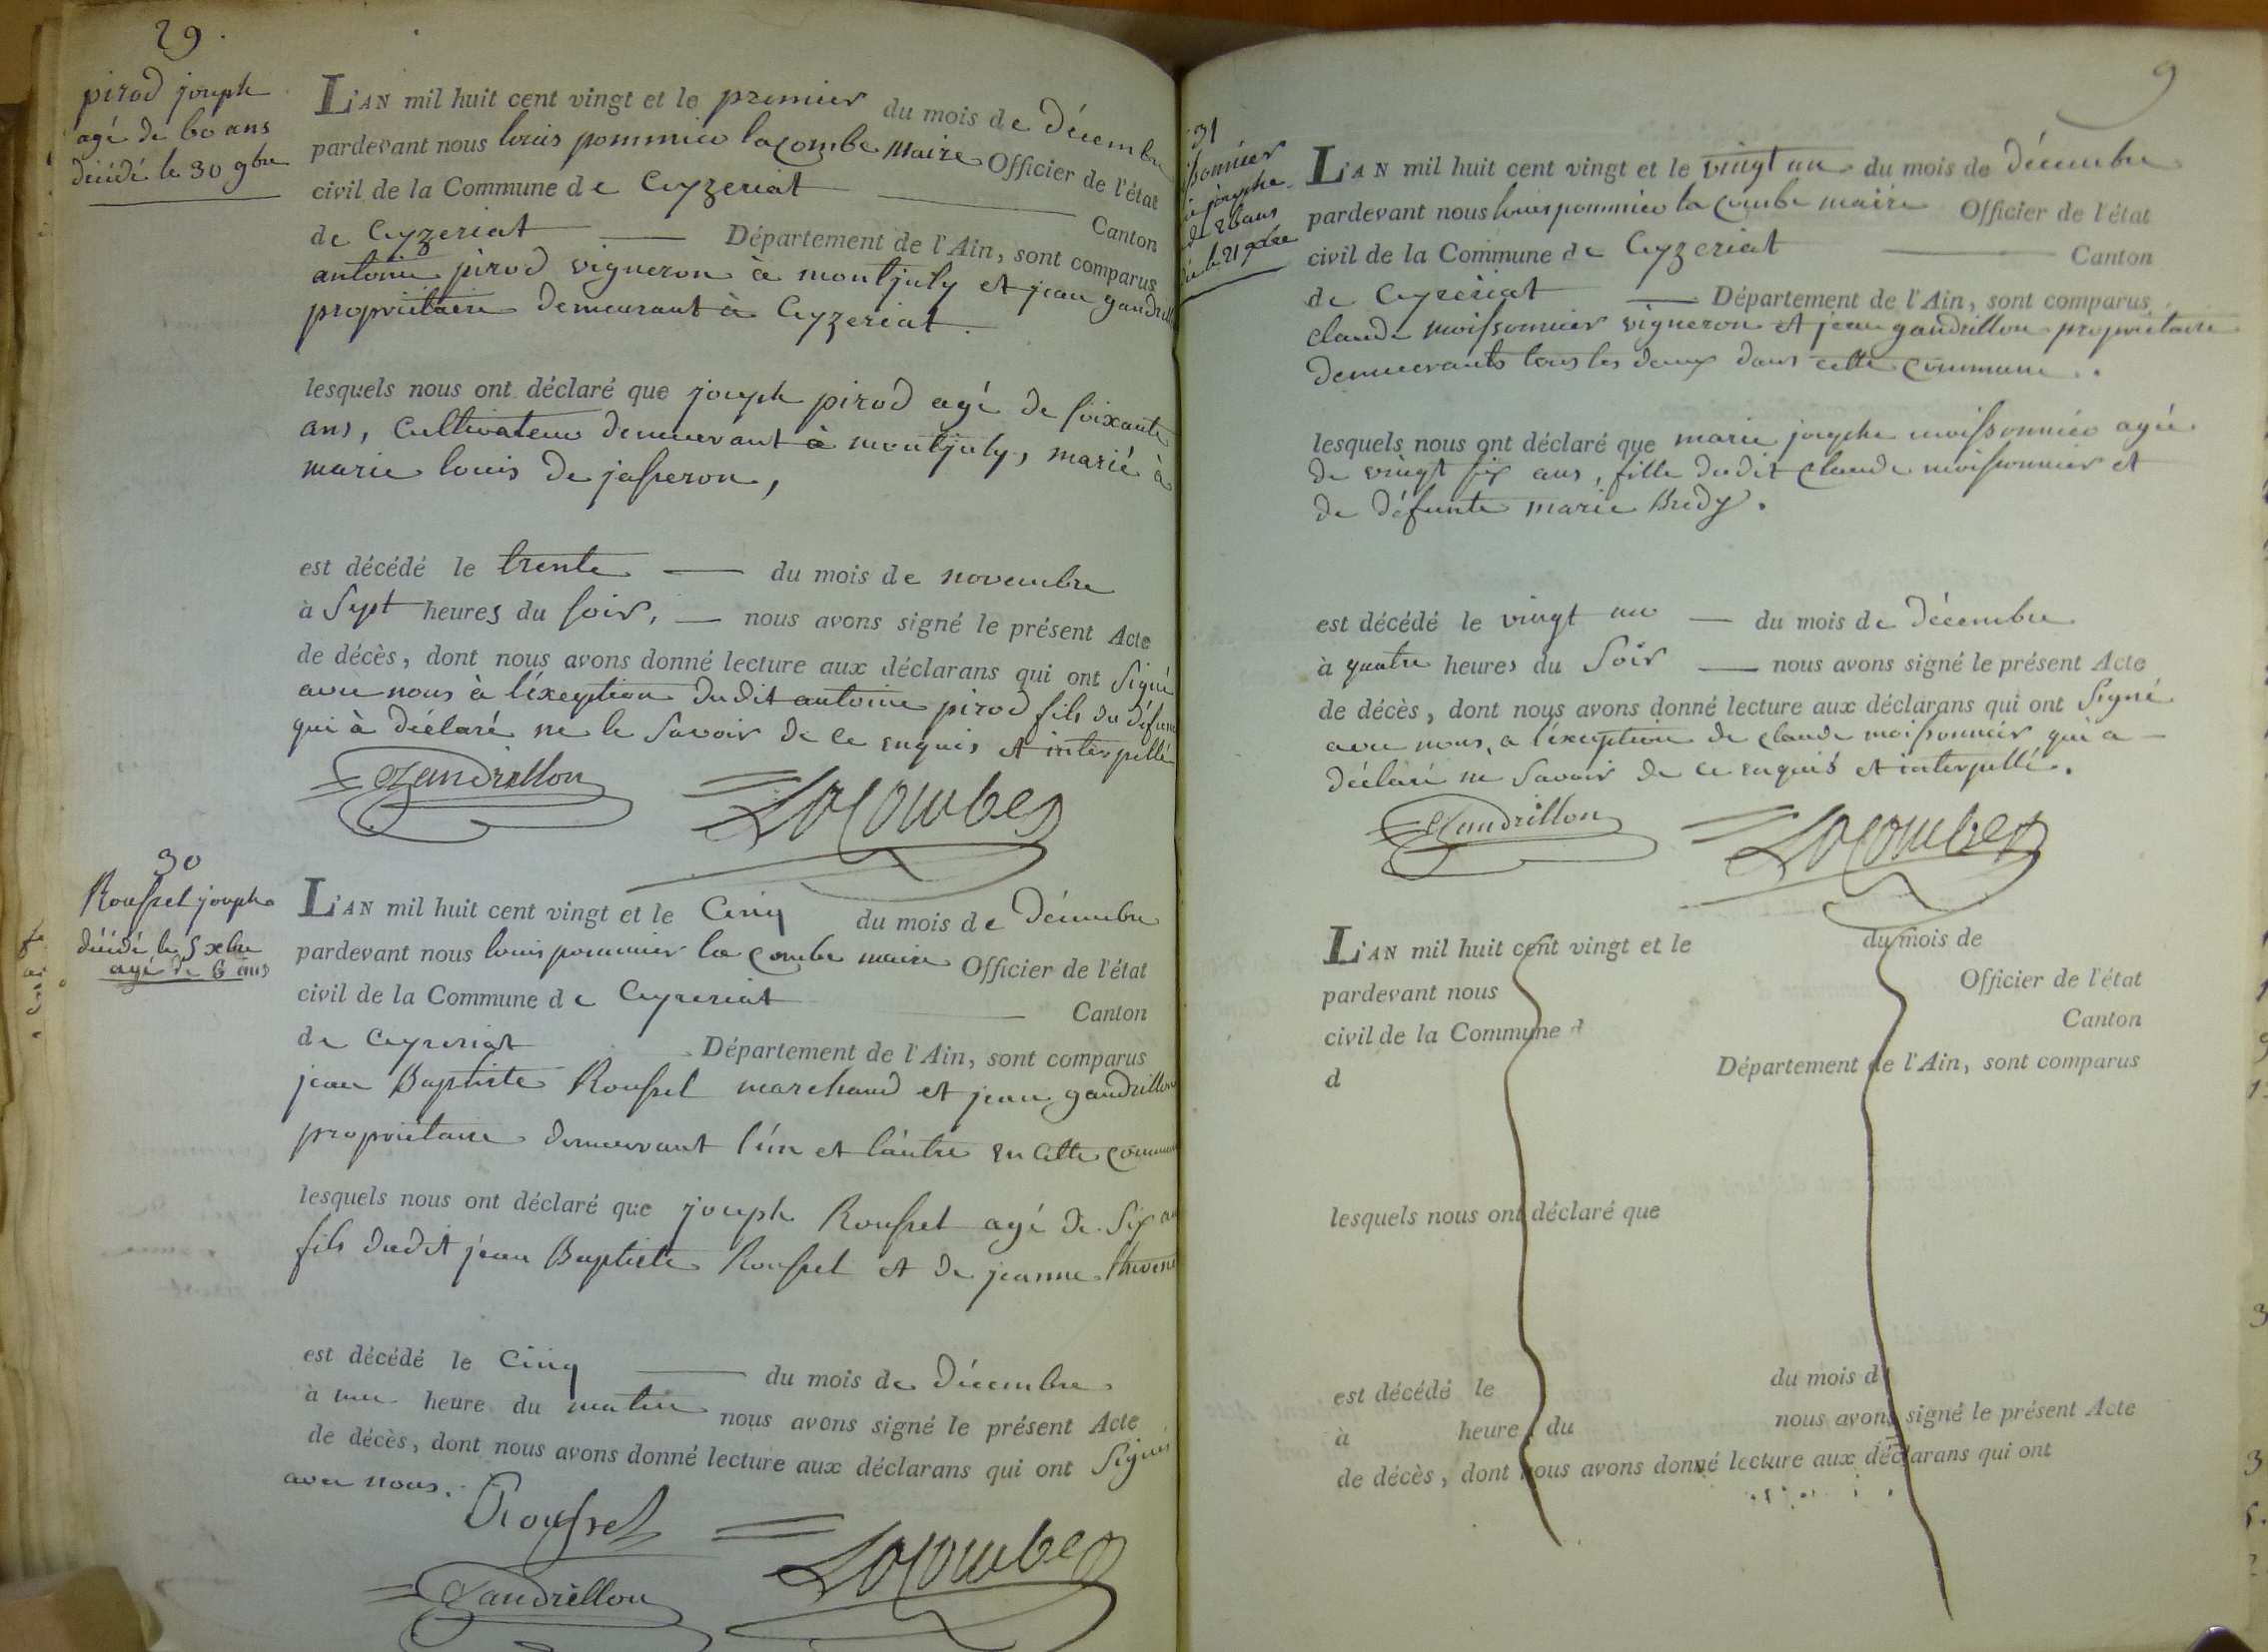 29.
pirod joseph
agé de 60 ans
décédé le 30 9bre
L'AN mil huit cent vingt et le premier du mois de Décembre
pardevant nous louis pommier lacombe maire Officier de l'état
civil de la Commune de Ceyzeriat Canton
de Ceyzeriat Département de l'Ain, sont comparus
antoine pirod vigneron à montjuly et jean gandrill
propriétaire demeurant à Ceyzeriat.
lesquels nous ont déclaré que joseph pirod agé de soixante
ans, Cultivateur demeurant à montjuly, marié à
marie louis de jasseron,
est décédé le trente du mois de novembre
à Sept heures du soir, nous avons signé le présent Acte
de décès, dont nous avons donné lecture aux déclarans qui ont Signé
avec nous à l'éxeption dudit antoine pirod fils du défun
qui à déclaré ne le Savoir de ce enquis et interpellé
Gandrillon Lacombe
30
Roussel joseph
décédé le 5 xbre
agé de 6 ans
L'AN mil huit cent vingt et le Cinq du mois de Décembre
pardevant nous louis pommier la combe maire Officier de l'état
civil de la Commune de Ceyzeriat Canton
de Ceyzeriat Département de l'Ain, sont comparus
jean Baptiste Roussel marchand et jean gandrillon
propriétaire demeurant l'un et l'autre en cette commune
lesquels nous ont déclaré que joseph Roussel agé de Six an
fils dudit jean Baptiste Roussel et de jeanne
est décédé le Cinq du mois de Décembre
à une heure du matin nous avons signé le présent Acte
de décès, dont nous avons donné lecture aux déclarans qui ont Signés
avec nous.
Roussel
Gandrillon Lacombe
9
31
ssonnier
ie josephe
de 26 ans
dée le 21 xbre
L'AN mil huit cent vingt et le vingt un du mois de Décembre
pardevant nous louis pommier la combe maire Officier de l'état
civil de la Commune de Ceyzeriat Canton
de Ceyzeriat Département de l'Ain, sont comparus
claude moissonnier vigneron et jean gandrillon propriétaire
demeurants tous les deux dans cette commune.
lesquels nous ont déclaré que marie josephe moissonnier agée
de vingt six ans, fille dudit claude moissonnier et
de défunte marie Bredy.
est décédé le vingt un du mois de Décembre
à quatre heures du Soir nous avons signé le présent Acte
de décès, dont nous avons donné lecture aux déclarans qui ont Signé
avec nous, a l'éxeption de claude moissonnier qui a
déclaré ne Savoir de ce enquis et interpellé.
Gandrillon Lacombe
L'AN mil huit cent vingt et le du mois de
pardevant nous Officier de l'état
civil de la Commune d Canton
d Département de l'Ain, sont comparus
lesquels nous ont déclaré que
est décédé le du mois d
à heure du nous avons signé le présent Acte
de décès, dont nous avons donné lecture aux déclarans qui ont